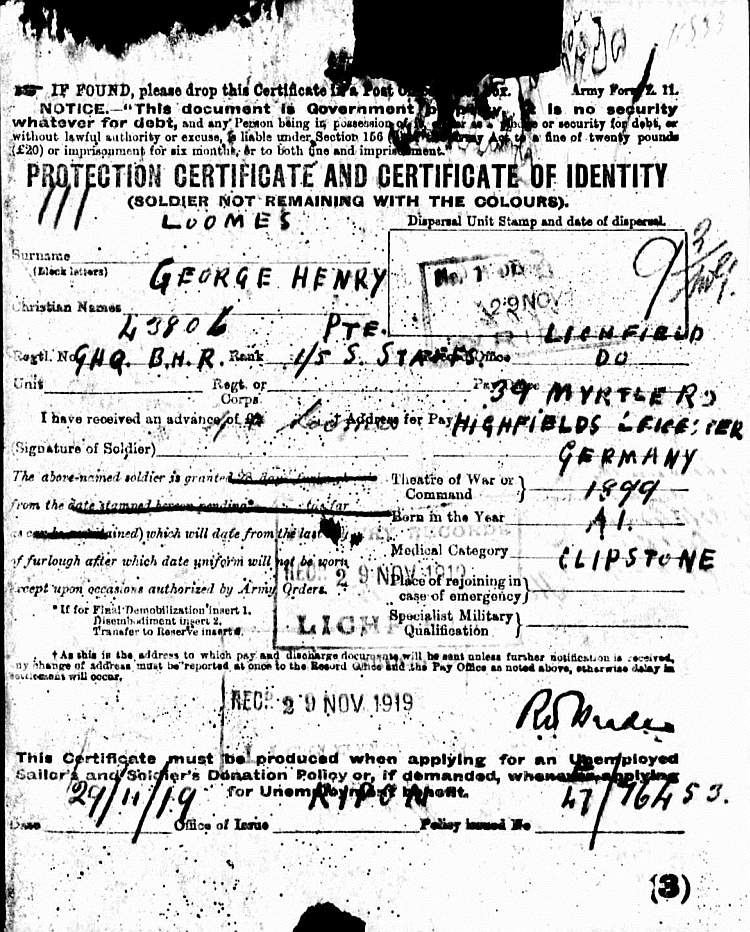 IF FOUND, please drop this Certificate in a Post Office Box. Army Form Z. 11.
NOTICE.—"This document is Government property. It is no security
whatever for debt, and any Person being in possession of it, either as a pledge or security for debt, or
without lawful authority or excuse, is liable under Section 156 Army Act to a fine of twenty pounds
(£20) or imprisonment for six months, or to both fine and imprisonment.
PROTECTION CERTIFICATE AND CERTIFICATE OF IDENTITY
(SOLDIER NOT REMAINING WITH THE COLOURS).
LOOMES
Dispersal Unit Stamp and date of dispersal.
Surname
(Block letters)
GEORGE HENRY
No. 1
29 NOV
Christian Names
43806 PTE. LICHFIELD
Regtl. No. Rank Record Office
GHQ. B.H.R. 1/5 S. STAFFS. DO
Unit Regt. or Corps. Pay Office
39 MYRTLE RD
I have received an advance of £2 † Address for Pay HIGHFIELDS LEICESTER
Loomes
(Signature of Soldier)
GERMANY
The above-named soldier is granted 28 days' furlough
Theatre of War or Command }
from the date stamped hereon pending* (as far
1899
Born in the Year
as can be ascertained) which will date from the last day
A1.
of furlough after which date uniform will not be worn
Medical Category
CLIPSTONE
except upon occasions authorized by Army Orders.
Place of rejoining in case of emergency }
RECORDS
REC. 29 NOV 1919
LICH
* If for Final Demobilization insert 1.
Disembodiment insert 2.
Transfer to Reserve insert 3.
Specialist Military Qualification }
† As this is the address to which pay and discharge documents will be sent unless further notification is received,
any change of address must be reported at once to the Record Office and the Pay Office as noted above, otherwise delay in
settlement will occur.
REC. 29 NOV 1919
This Certificate must be produced when applying for an Unemployed
Sailor's and Soldier's Donation Policy or, if demanded, whenever applying
for Unemployment benefit.
29/11/19 RIPON 47/76453.
Date Office of Issue Policy issued No
(3)